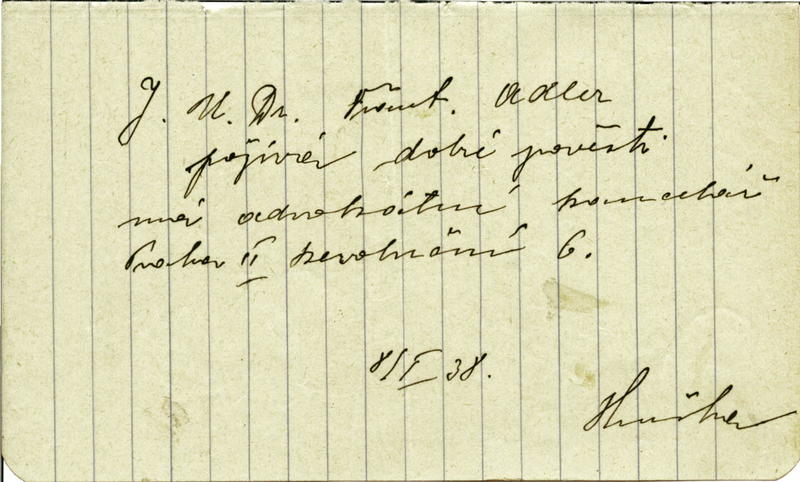 J. U. Dr. Frant. Adler
požívá dobré pověsti
má advokátní kancelář
Praha II Revoluční 6.
8/I 38.